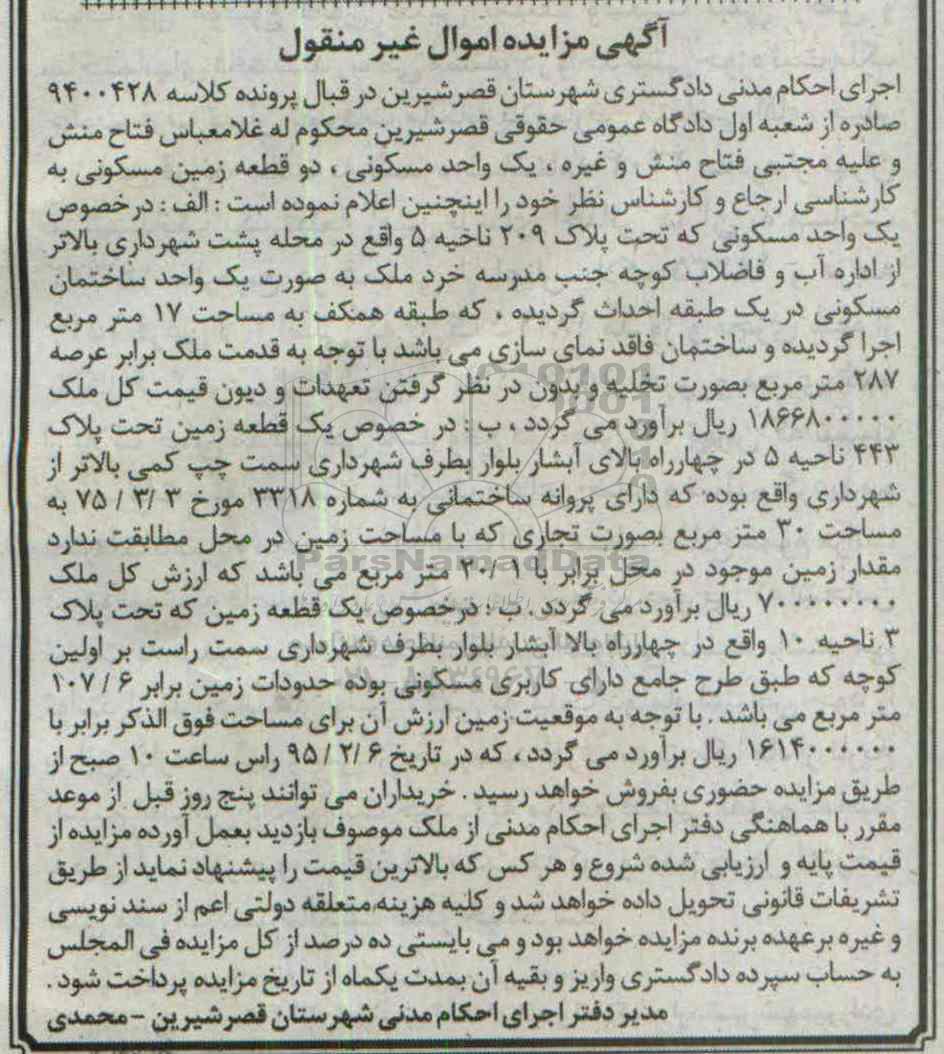 آگهی مزایده اموال غیر منقول
اجرای احکام مدنی دادگستری شهرستان قصرشیرین در قبال پرونده کلاسه ۹۴۰۰۴۲۸
صادره از شعبه اول دادگاه عمومی حقوقی قصرشیرین محکوم له غلامعباس فتاح منش
و علیه مجتبی فتاح منش و غیره ، یک واحد مسکونی ، دو قطعه زمین مسکونی به
کارشناسی ارجاع و کارشناس نظر خود را اینچنین اعلام نموده است : الف : درخصوص
یک واحد مسکونی که تحت پلاک ۲۰۹ ناحیه ۵ واقع در محله پشت شهرداری بالاتر
از اداره آب و فاضلاب کوچه جنب مدرسه خرد ملک به صورت یک واحد ساختمان
مسکونی در یک طبقه احداث گردیده ، که طبقه همکف به مساحت ۱۷ متر مربع
اجرا گردیده و ساختمان فاقد نمای سازی می باشد با توجه به قدمت ملک برابر عرصه
۲۸۷ متر مربع بصورت تخلیه و بدون در نظر گرفتن تعهدات و دیون قیمت کل ملک
۱۸۶۶۸۰۰۰۰۰ ریال برآورد می گردد ، ب : در خصوص یک قطعه زمین تحت پلاک
۴۴۳ ناحیه ۵ در چهارراه بالای آبشار بلوار بطرف شهرداری سمت چپ کمی بالاتر از
شهرداری واقع بوده که دارای پروانه ساختمانی به شماره ۳۳۱۸ مورخ ۳ /۳ / ۷۵ به
مساحت ۳۰ متر مربع بصورت تجاری که با مساحت زمین در محل مطابقت ندارد
مقدار زمین موجود در محل برابر با ۱۹ /۲۰ متر مربع می باشد که ارزش کل ملک
۷۰۰۰۰۰۰۰۰ ریال برآورد می گردد . ب : درخصوص یک قطعه زمین که تحت پلاک
۳ ناحیه ۱۰ واقع در چهارراه بالا آبشار بلوار بطرف شهرداری سمت راست بر اولین
کوچه که طبق طرح جامع دارای کاربری مسکونی بوده حدودات زمین برابر ۶ / ۱۰۷
متر مربع می باشد . با توجه به موقعیت زمین ارزش آن برای مساحت فوق الذکر برابر با
۱۶۱۴۰۰۰۰۰۰ ریال برآورد می گردد ، که در تاریخ ۶ /۲ / ۹۵ راس ساعت ۱۰ صبح از
طریق مزایده حضوری بفروش خواهد رسید . خریداران می توانند پنج روز قبل از موعد
مقرر با هماهنگی دفتر اجرای احکام مدنی از ملک موصوف بازدید بعمل آورده مزایده از
قیمت پایه و ارزیابی شده شروع و هر کس که بالاترین قیمت را پیشنهاد نماید از طریق
تشریفات قانونی تحویل داده خواهد شد و کلیه هزینه متعلقه دولتی اعم از سند نویسی
و غیره برعهده برنده مزایده خواهد بود و می بایستی ده درصد از کل مزایده فی المجلس
به حساب سپرده دادگستری واریز و بقیه آن بمدت یکماه از تاریخ مزایده پرداخت شود .
مدیر دفتر اجرای احکام مدنی شهرستان قصرشیرین - محمدی
ParsNamadData